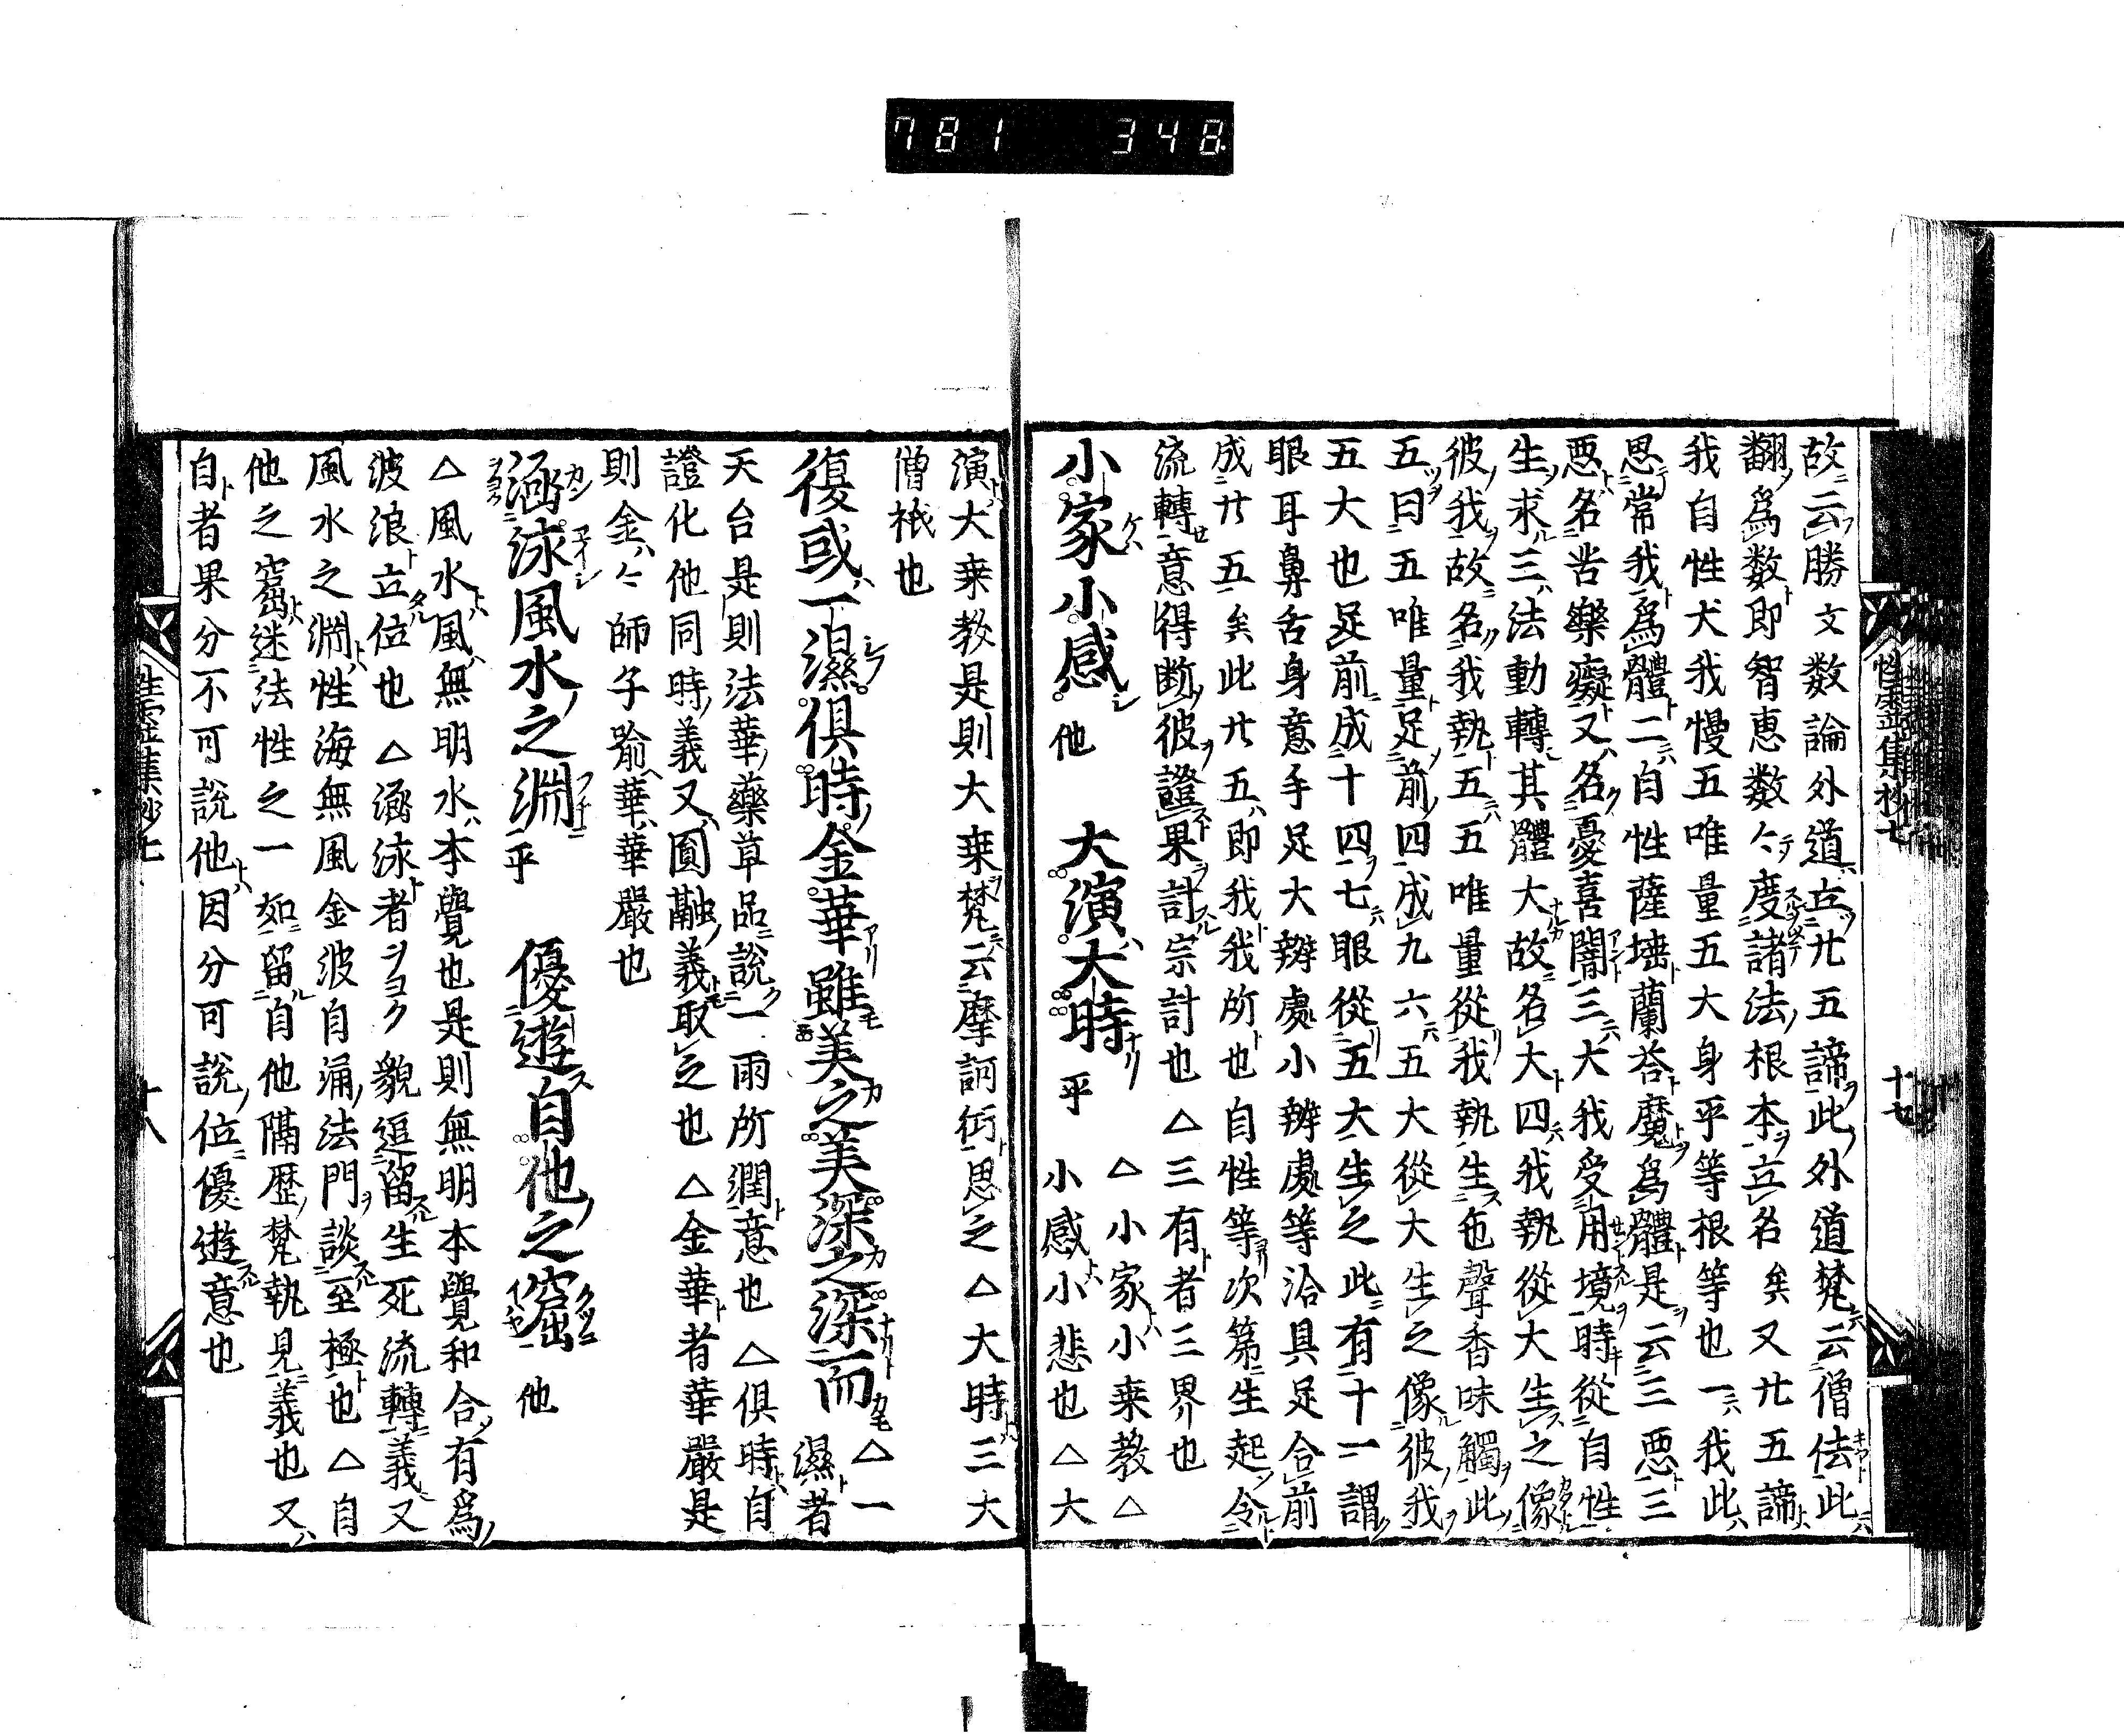 781 348
性霊集抄七 十七
故云勝文数論外道立廿五諦此外道梵云僧佉此
翻為数即智恵数々度諸法根本立名矣又廿五諦
我自性犬我慢五唯量五大身乎等根等也一我此
思常我為體二自性薩埵蘭荅魔為體是云三悪三
悪名苦樂癡又名憂喜闇三大我受用境時從自性
生求三法動轉其體大故名大四我執從大生之像
彼我故名我執五五唯量從我執生色聲香味觸此
五曰五唯量足前四成九六五大從大生之像彼我
五大也足前成十四七眼從五大生之此有十一謂
眼耳鼻舌身意手足大辨處小辨處等洽具足合前
成廿五矣此廿五即我我所也自性等次第生起令
流轉意得断彼證果計宗計也△三有者三界也
小家小感他 大演大時乎 △小家小乗教△
小感小悲也△大
演大乗教是則大乗梵云摩訶衍思之△大時三大
僧祇也
復或一濕俱時金華雖美之美深之深而△一
濕者
天台是則法華藥草品說一雨所潤意也△俱時自
證化他同時義又圓融義取之也△金華者華嚴是
則金々師子喻華華嚴也
涵泳風水之淵乎 優遊自他之窟他
△風水風無明水本覺也是則無明本覺和合有為
波浪立位也△涵泳者ヲヨク貌逗留生死流轉義又
風水之淵性海無風金波自涌法門談至極也△自
他之窟迷法性之一如留自他隔歴梵執見義也又
自者果分不可說他因分可說位優遊意也
性霊集抄七 十八